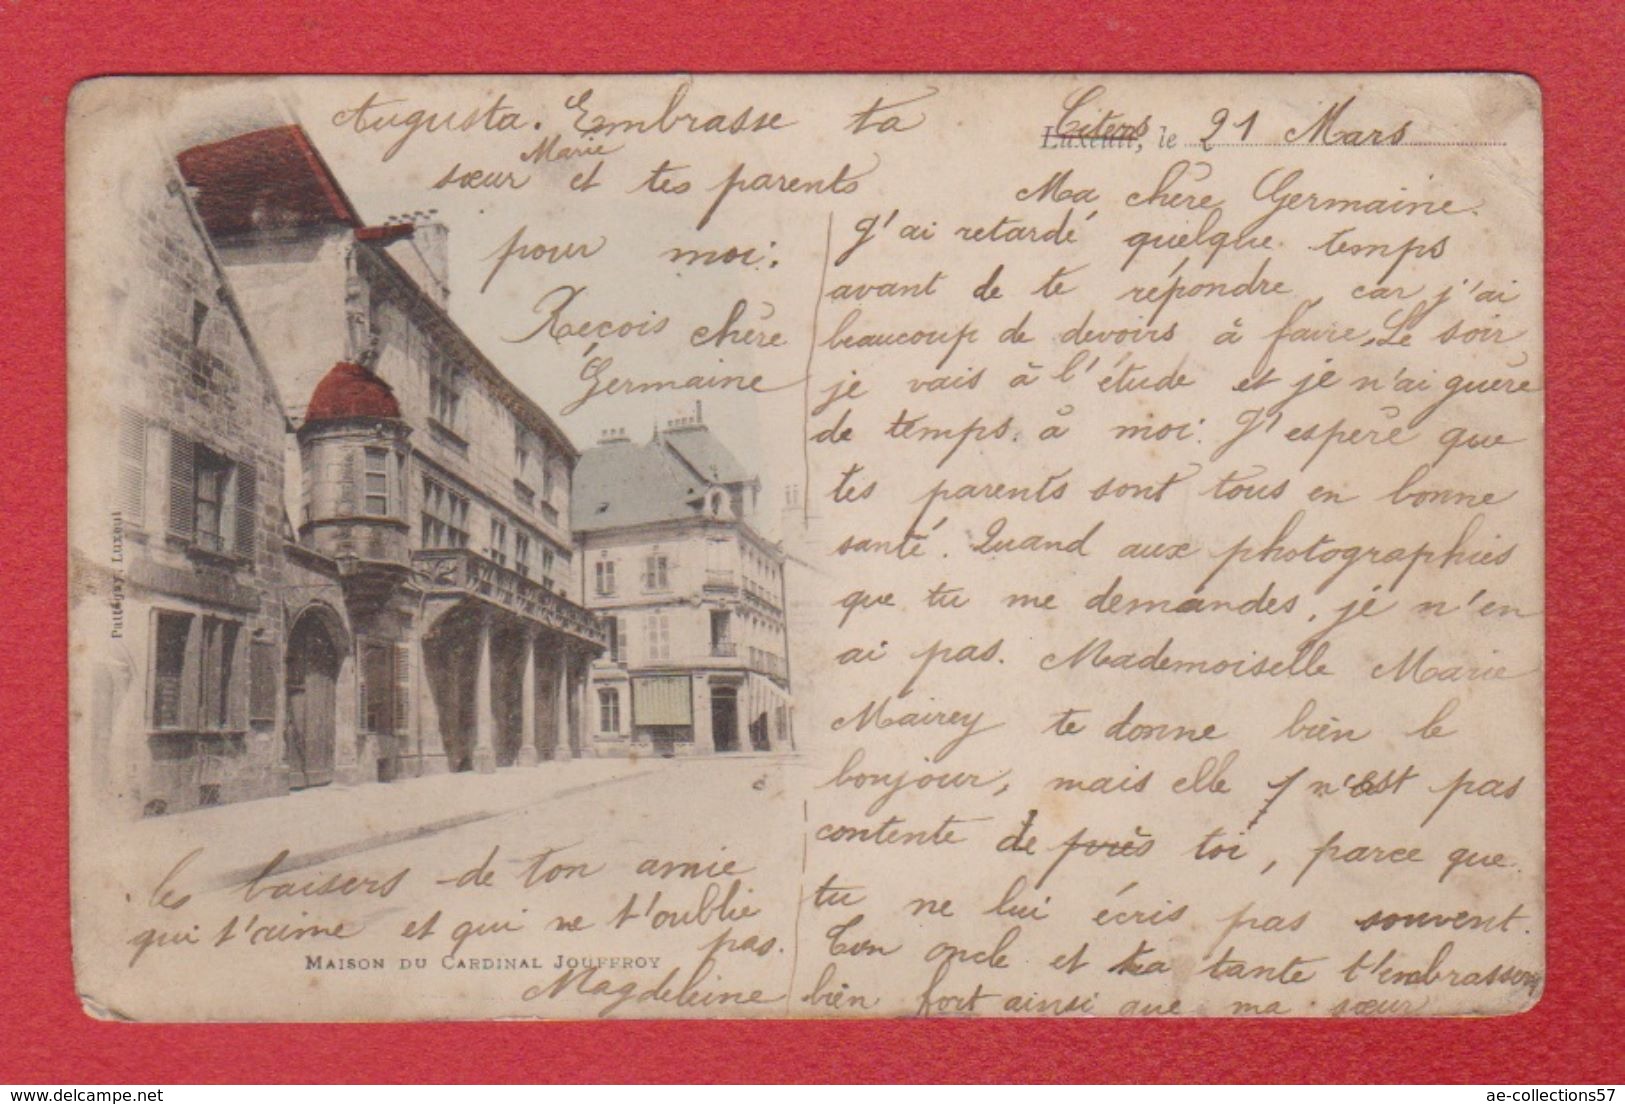 Citers, le 21 Mars
Ma chère Germaine.
J'ai retardé quelque temps
avant de te répondre car j'ai
beaucoup de devoirs à faire. Le soir
je vais à l'étude et je n'ai guère
de temps. à moi. J'espère que
tes parents sont tous en bonne
santé. Quand aux photographies
que tu me demandes, je n'en
ai pas. Mademoiselle Marie
Mairey te donne bien le
bonjour, mais elle n'est pas
contente de près toi, parce que
tu ne lui écris pas souvent.
Ton oncle et ta tante t'embrassent
bien fort ainsi que ma sœur
Augusta. Embrasse ta
sœur Marie et tes parents
pour moi.
Reçois chère
Germaine
les baisers de ton amie
qui t'aime et qui ne t'oublie
pas.
Magdeleine
MAISON DU CARDINAL JOUFFROY
Pattegay, Luxeuil
ae-collections57